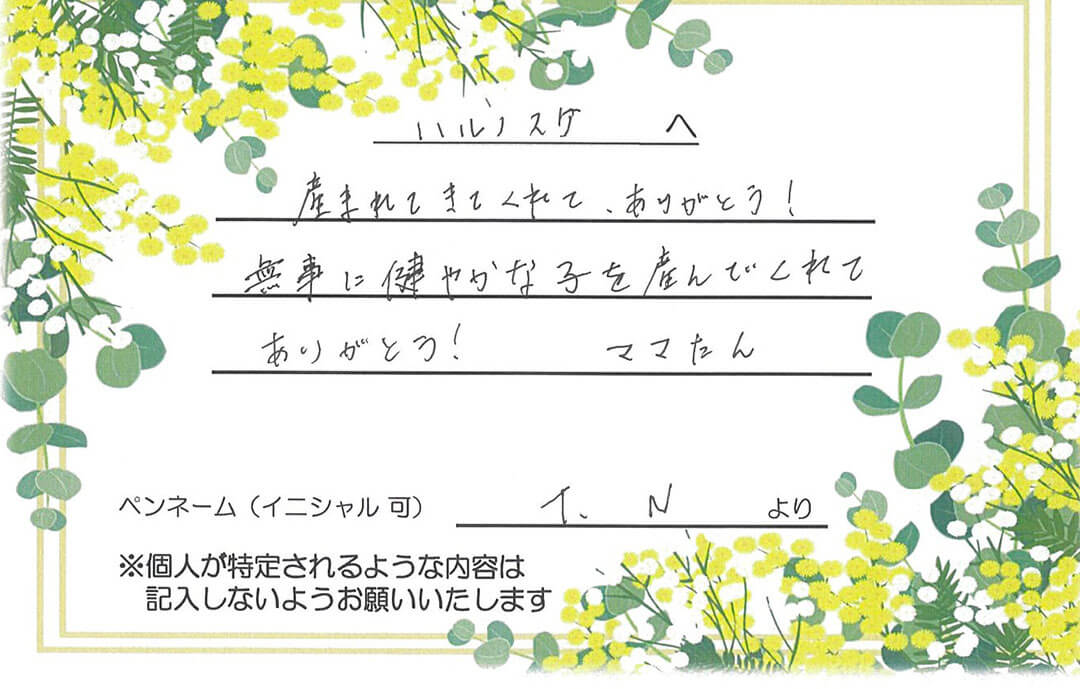 ハルノスケ へ
産まれてきてくれて、ありがとう!
無事に健やかな子を産んでくれて
ありがとう! ママたん
ペンネーム(イニシャル 可) T. N より
※個人が特定されるような内容は
記入しないようお願いいたします